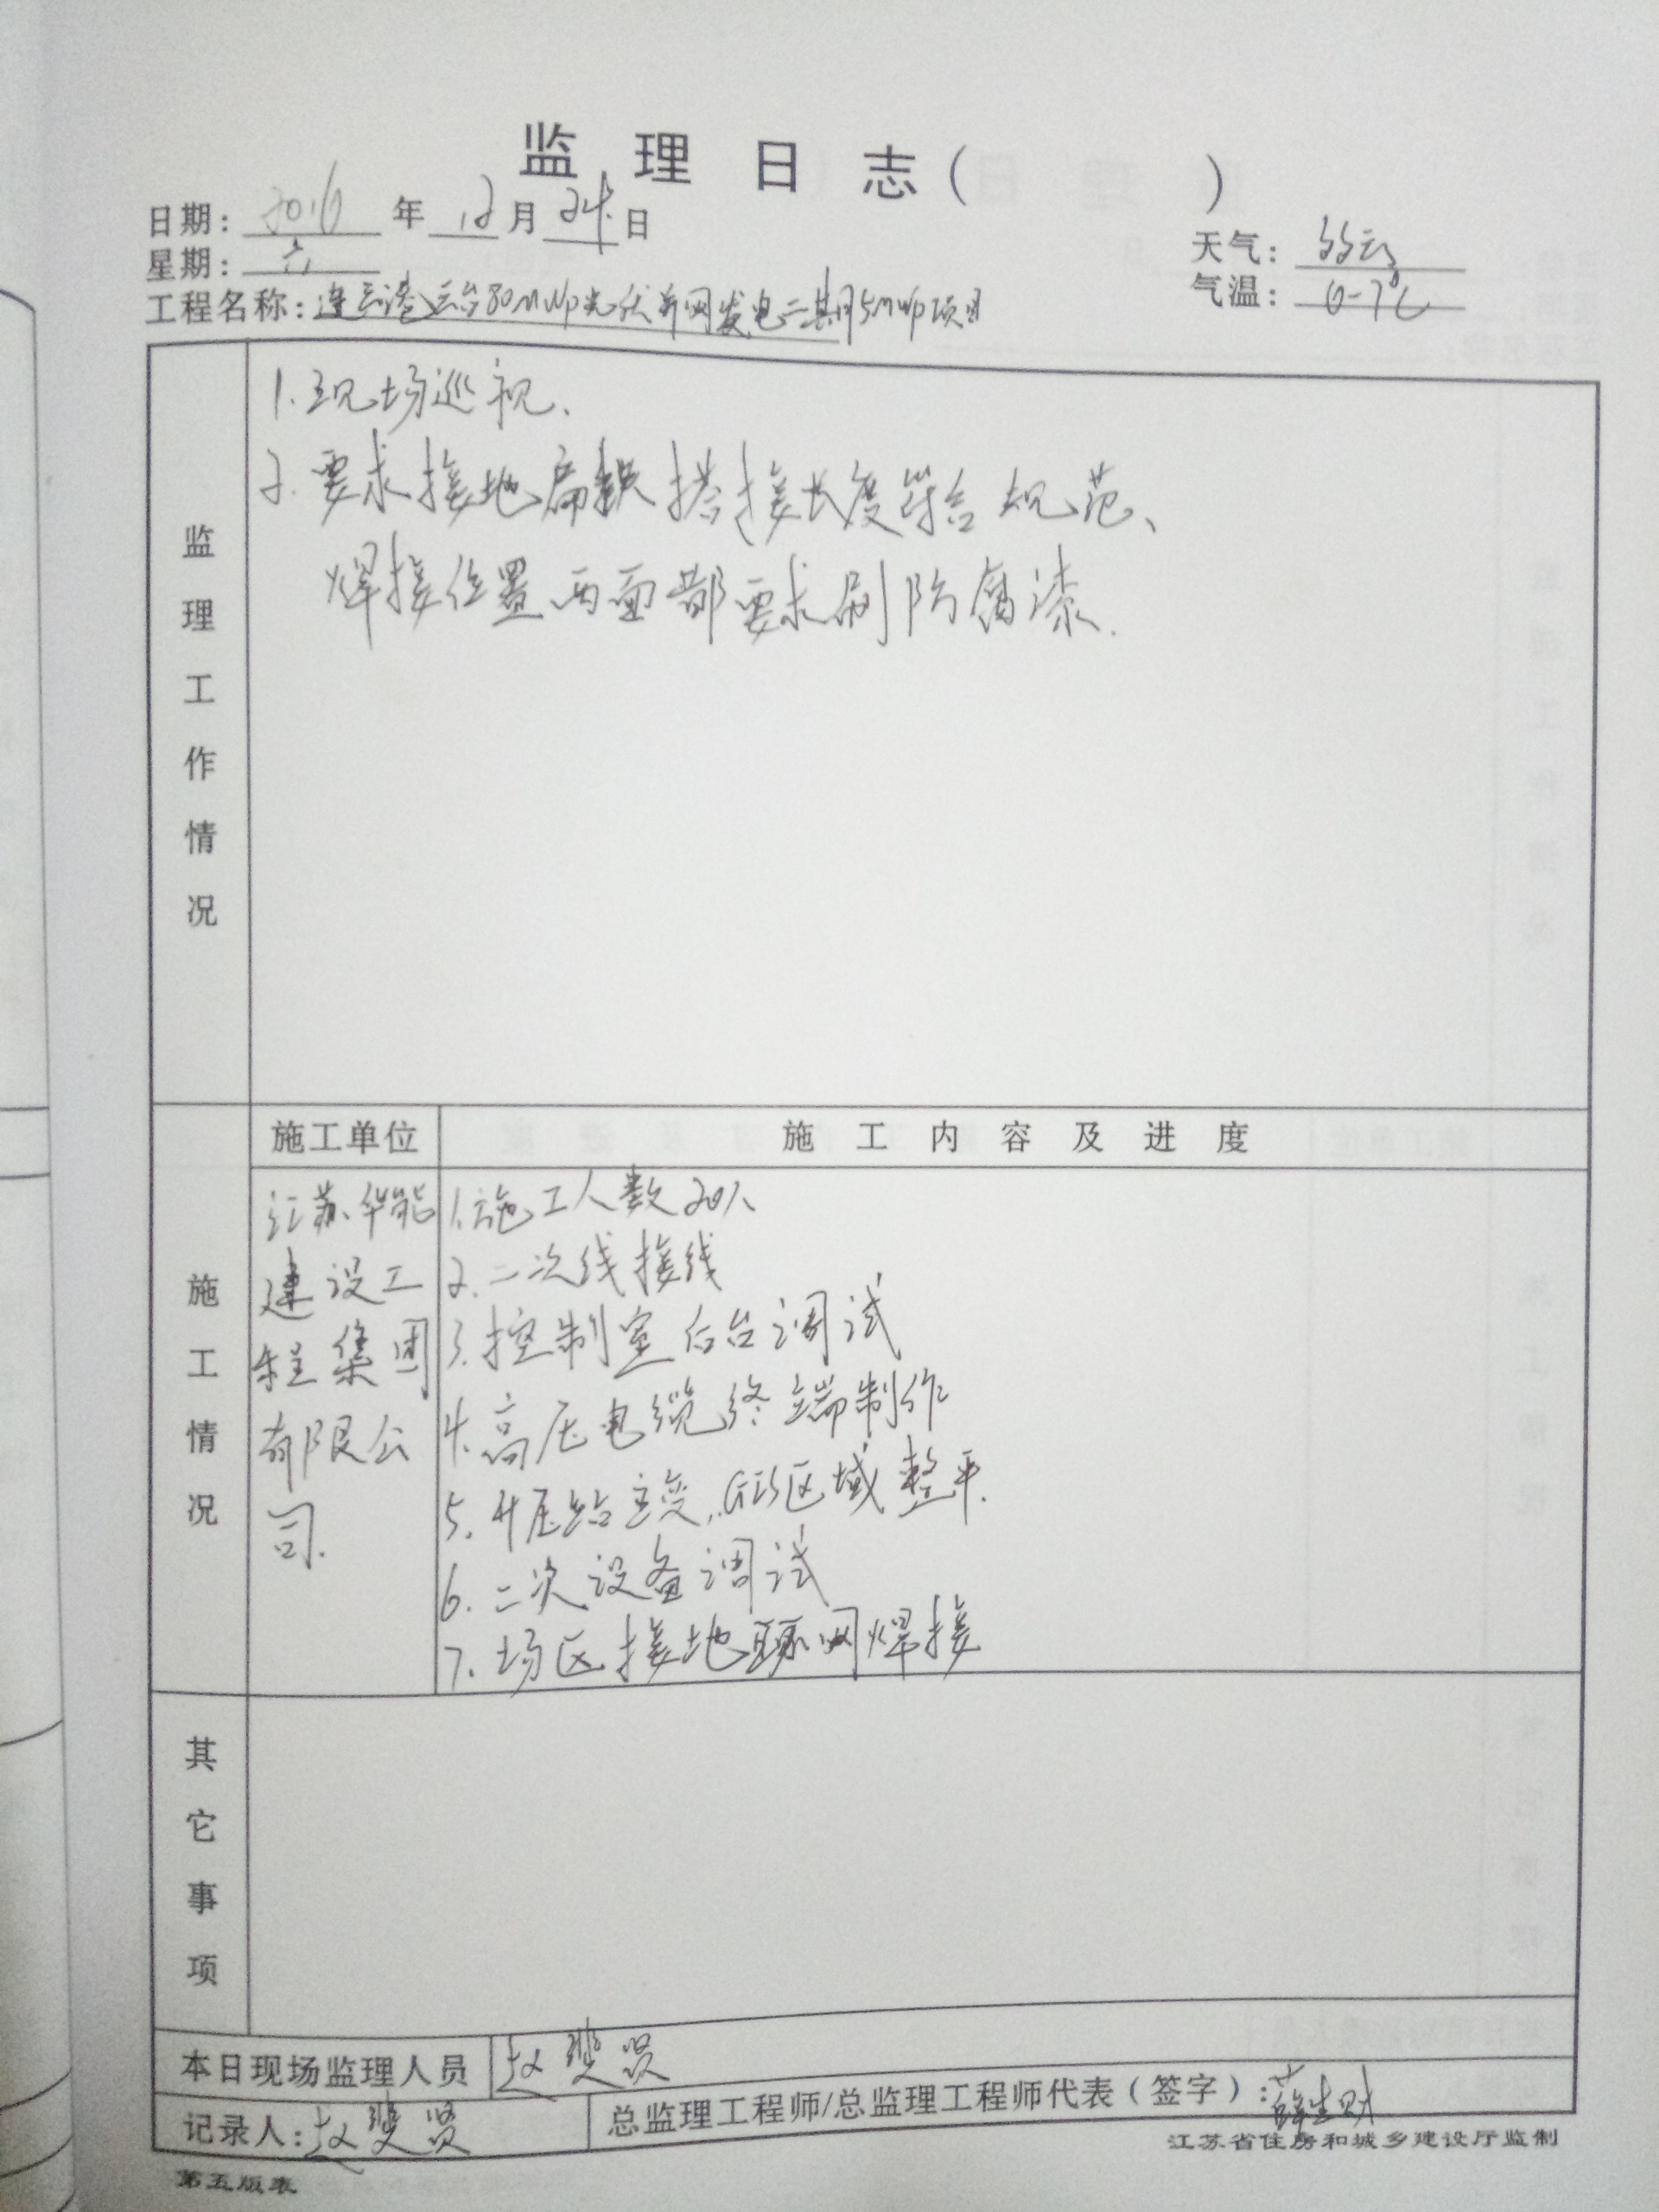 监理日志（ ）
日期：2016年12月24日
星期：六
天气：多云
气温：0-7℃
工程名称：连云港云台80MWp光伏并网发电二期5MWp项目
监理工作情况
1.现场巡视、
2.要求接地扁铁搭接长度符合规范、
焊接位置两面都要求刷防腐漆.
施工情况
施工单位
施工内容及进度
江苏华能
建设工
程集团
有限公
司.
1.施工人数20人
2.二次线接线
3.控制室后台调试
4.高压电缆终端制作
5.升压站主变,GIS区域整平.
6.二次设备调试
7.场区接地联网焊接
其它事项
本日现场监理人员 赵
记录人：赵
总监理工程师/总监理工程师代表（签字）：薛
江苏省住房和城乡建设厅监制
第五版表